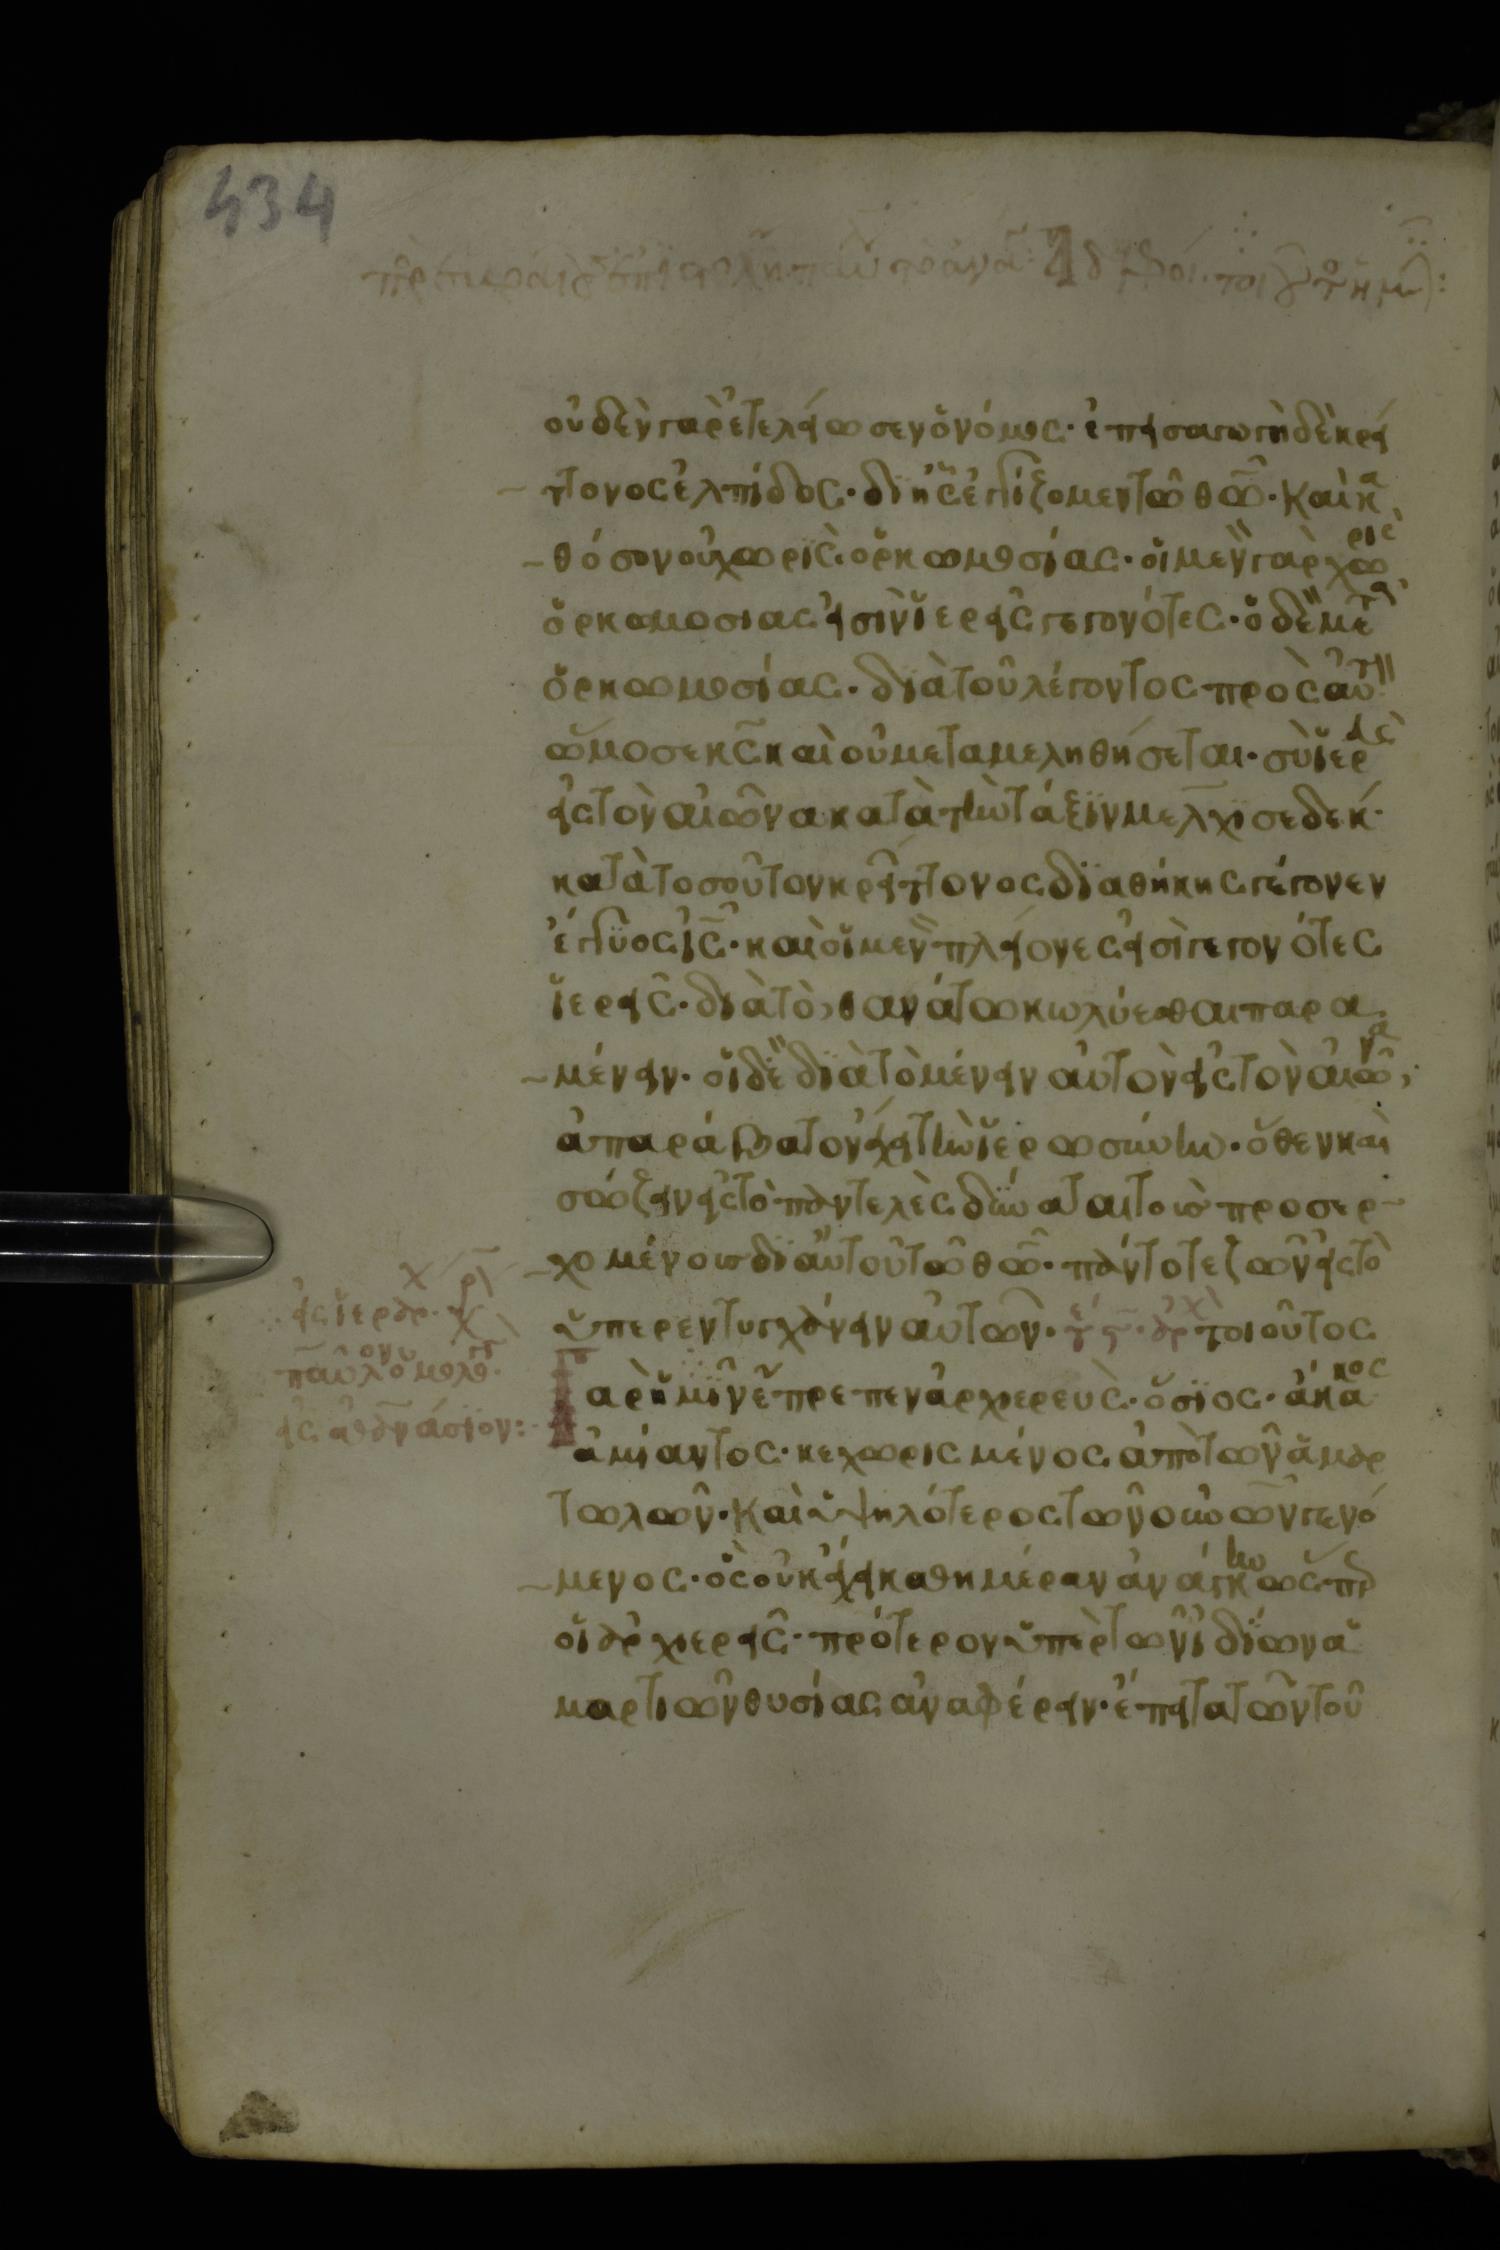 434
οὐδὲν γὰρ ἐτελείωσεν ὁ νόμος· ἐπεισαγωγὴ δὲ κρεί
ττονος ἐλπίδος· δι ἧς ἐγγίζομεν τῶ θῶ· Καὶ κα
θόσον οὐ χωρὶς ὁρκωμοσίας· οἱ μὲν γὰρ χωρὶς
ὁρκομοσιας εἰσὶν ἱερεῖς γεγονότες· ὁ δὲ μετὰ
ὁρκωμοσίας· διὰ τοῦ λέγοντος πρὸς αὐτ
ὤμοσε κς καὶ οὐ μεταμεληθήσεται· σὺ ἱερεὺς
εἰς τὸν αἰῶνα κατὰ τὴν τάξιν μελχισεδέκ·
κατὰ τοσοῦτον κρείττονος διαθήκης γέγονεν
ἔγγυος ις· καὶ οἱ μὲν πλείονες εἰσὶ γεγονότες
ἱερεῖς· διὰ τὸ θανάτω κωλύεσθαι παρα
μένειν· ὁ δὲ διὰ τὸ μένειν αὐτὸν εἰς τὸν αἰῶνα,
ἀπαράβατον ἔχει τὴν ἱερωσύνην· ὅθεν καὶ
σώζειν εἰς τὸ παντελὲς δύναται τοὺς προσερ
χομένους δι αὐτοῦ τῶ θῶ· πάντοτε ζῶν εἰς τὸ
ὑπερεντυγχάνειν αὐτῶν· τοιοῦτος
γὰρ ἡμῖν ἔπρεπεν ἀρχιερεὺς· ὅσιος· ἄκακος
ἀμίαντος· κεχωρισμένος ἀπὸ τῶν ἁμαρ
τωλῶν· Καὶ ὑψηλότερος τῶν οὐνῶν γενό
μενος· ὃς οὐκ ἔχει καθημέραν ἀνάγκην ὥσπερ
οἱ ἀρχιερεῖς· πρότερον ὑπὲρ τῶν ἰδίων ἁ
μαρτιῶν θυσίας ἀναφέρειν· ἔπειτα τῶν τοῦ
εἰς ἱεράρχ
εἰς ἀθανάσιον: